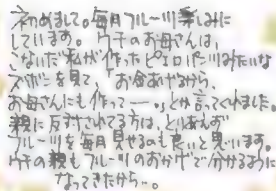 初めまして。毎月フルーツ楽しみに
しています。ウチのお母さんは、
こないだ私が作ったピエロパンツみたいな
ズボンを見て、お金あげるから、
お母さんにも作ってー。とか言ってくれました。
親に反対されてる方は、とりあえず
フルーツを毎月見せるのも良いと思います。
ウチの親もフルーツのおかげで分かるように
なってきたから…。